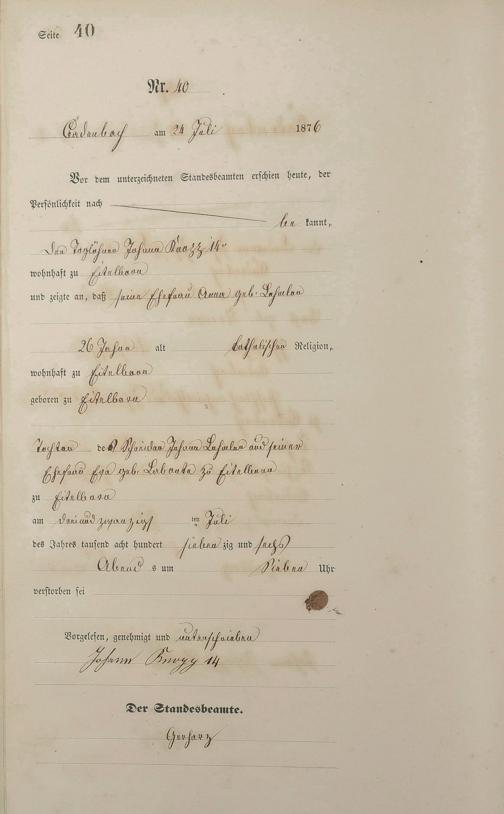 Seite 40
Nr. 40
Cadenbach am 24 Juli 1876
Vor dem unterzeichneten Standesbeamten erschien heute, der
Persönlichkeit nach
be kannt,
der Taglöhner Johann Knopp 14r
wohnhaft zu Eitelborn
und zeigte an, daß seine Ehefrau Anna geb. Lehmler
26 Jahre alt katholischer Religion,
wohnhaft zu Eitelborn
geboren zu Eitelborn
Tochter des Schneider Johann Lehmler und seiner
Ehefrau Eva geb. zu Eitelborn
zu Eitelborn
am dreiundzwanzigst im Juli
des Jahres tausend acht hundert sieben zig und sechs
Abend s um Sieben Uhr
verstorben sei
Vorgelesen, genehmigt und unterschrieben
Johann Knopp 14
Der Standesbeamte.
Gerharz